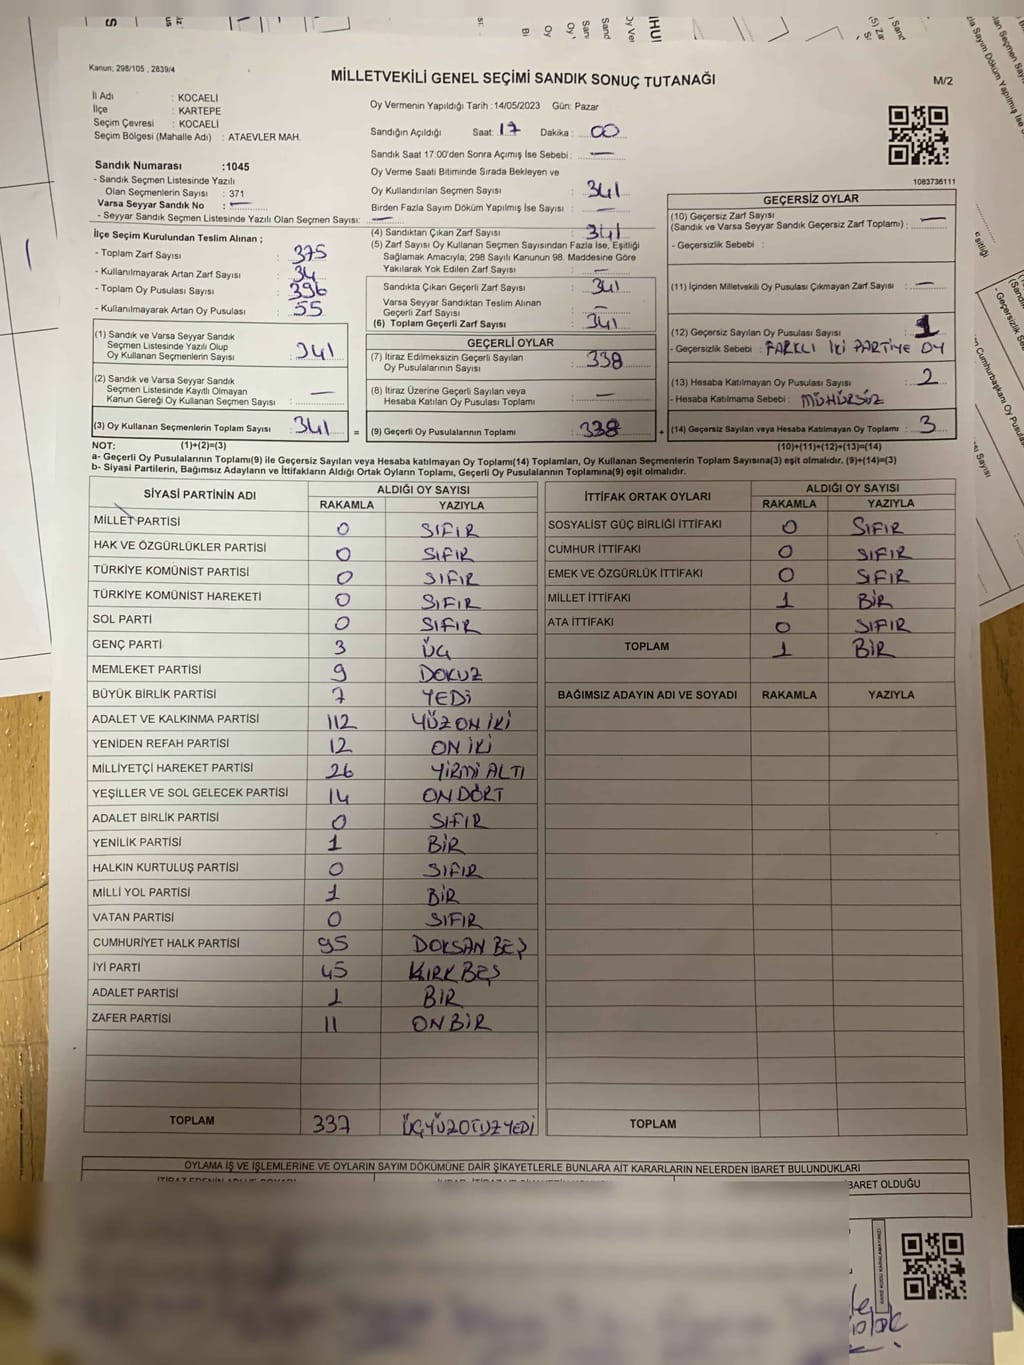 Kanun: 298/105 , 2839/4
MİLLETVEKİLİ GENEL SEÇİMİ SANDIK SONUÇ TUTANAĞI
M/2
İl Adı : KOCAELİ
İlçe : KARTEPE
Seçim Çevresi : KOCAELİ
Seçim Bölgesi (Mahalle Adı) : ATAEVLER MAH.
Sandık Numarası :1045
- Sandık Seçmen Listesinde Yazılı
Olan Seçmenlerin Sayısı : 371
Varsa Seyyar Sandık No : —
- Seyyar Sandık Seçmen Listesinde Yazılı Olan Seçmen Sayısı: —
İlçe Seçim Kurulundan Teslim Alınan ;
- Toplam Zarf Sayısı : 375
- Kullanılmayarak Artan Zarf Sayısı : 34
- Toplam Oy Pusulası Sayısı : 396
- Kullanılmayarak Artan Oy Pusulası : 55
(1) Sandık ve Varsa Seyyar Sandık
Seçmen Listesinde Yazılı Olup
Oy Kullanan Seçmenlerin Sayısı : 341
(2) Sandık ve Varsa Seyyar Sandık
Seçmen Listesinde Kayıtlı Olmayan
Kanun Gereği Oy Kullanan Seçmen Sayısı : —
(3) Oy Kullanan Seçmenlerin Toplam Sayısı : 341 =
Oy Vermenin Yapıldığı Tarih :14/05/2023 Gün: Pazar
Sandığın Açıldığı Saat: 17 Dakika : 00
Sandık Saat 17:00'den Sonra Açımış İse Sebebi : —
Oy Verme Saati Bitiminde Sırada Bekleyen ve
Oy Kullandırılan Seçmen Sayısı : 341
Birden Fazla Sayım Döküm Yapılmış İse Sayısı : —
(4) Sandıktan Çıkan Zarf Sayısı : 341
(5) Zarf Sayısı Oy Kullanan Seçmen Sayısından Fazla İse, Eşitliği
Sağlamak Amacıyla; 298 Sayılı Kanunun 98. Maddesine Göre
Yakılarak Yok Edilen Zarf Sayısı : —
Sandıkta Çıkan Geçerli Zarf Sayısı : 341
Varsa Seyyar Sandıktan Teslim Alınan
Geçerli Zarf Sayısı : —
(6) Toplam Geçerli Zarf Sayısı : 341
GEÇERLİ OYLAR
(7) İtiraz Edilmeksizin Geçerli Sayılan
Oy Pusulalarının Sayısı : 338
(8) İtiraz Üzerine Geçerli Sayılan veya
Hesaba Katılan Oy Pusulası Toplamı : —
(9) Geçerli Oy Pusulalarının Toplamı : 338 +
1083736111
GEÇERSİZ OYLAR
(10) Geçersiz Zarf Sayısı
(Sandık ve Varsa Seyyar Sandık Geçersiz Zarf Toplamı) : —
- Geçersizlik Sebebi :
(11) İçinden Milletvekili Oy Pusulası Çıkmayan Zarf Sayısı : —
(12) Geçersiz Sayılan Oy Pusulası Sayısı : 1
- Geçersizlik Sebebi : FARKLI İKİ PARTİYE OY
(13) Hesaba Katılmayan Oy Pusulası Sayısı : 2
- Hesaba Katılmama Sebebi : MÜHÜRSÜZ
(14) Geçersiz Sayılan veya Hesaba Katılmayan Oy Toplamı : 3
NOT: (1)+(2)=(3) (10)+(11)+(12)+(13)=(14)
a- Geçerli Oy Pusulalarının Toplamı(9) ile Geçersiz Sayılan veya Hesaba katılmayan Oy Toplamı(14) Toplamları, Oy Kullanan Seçmenlerin Toplam Sayısına(3) eşit olmalıdır. (9)+(14)=(3)
b- Siyasi Partilerin, Bağımsız Adayların ve İttifakların Aldığı Ortak Oyların Toplamı, Geçerli Oy Pusulalarının Toplamına(9) eşit olmalıdır.
SİYASİ PARTİNİN ADI ALDIĞI OY SAYISI
RAKAMLA YAZIYLA
MİLLET PARTİSİ 0 SIFIR
HAK VE ÖZGÜRLÜKLER PARTİSİ 0 SIFIR
TÜRKİYE KOMÜNİST PARTİSİ 0 SIFIR
TÜRKİYE KOMÜNİST HAREKETİ 0 SIFIR
SOL PARTİ 0 SIFIR
GENÇ PARTİ 3 ÜÇ
MEMLEKET PARTİSİ 9 DOKUZ
BÜYÜK BİRLİK PARTİSİ 7 YEDİ
ADALET VE KALKINMA PARTİSİ 112 YÜZ ON İKİ
YENİDEN REFAH PARTİSİ 12 ON İKİ
MİLLİYETÇİ HAREKET PARTİSİ 26 YİRMİ ALTI
YEŞİLLER VE SOL GELECEK PARTİSİ 14 ON DÖRT
ADALET BİRLİK PARTİSİ 0 SIFIR
YENİLİK PARTİSİ 1 BİR
HALKIN KURTULUŞ PARTİSİ 0 SIFIR
MİLLİ YOL PARTİSİ 1 BİR
VATAN PARTİSİ 0 SIFIR
CUMHURİYET HALK PARTİSİ 95 DOKSAN BEŞ
İYİ PARTİ 45 KIRK BEŞ
ADALET PARTİSİ 1 BİR
ZAFER PARTİSİ 11 ON BİR
TOPLAM 337 ÜÇYÜZOTUZYEDİ
İTTİFAK ORTAK OYLARI ALDIĞI OY SAYISI
RAKAMLA YAZIYLA
SOSYALİST GÜÇ BİRLİĞİ İTTİFAKI 0 SIFIR
CUMHUR İTTİFAKI 0 SIFIR
EMEK VE ÖZGÜRLÜK İTTİFAKI 0 SIFIR
MİLLET İTTİFAKI 1 BİR
ATA İTTİFAKI 0 SIFIR
TOPLAM 1 BİR
BAĞIMSIZ ADAYIN ADI VE SOYADI RAKAMLA YAZIYLA
TOPLAM
OYLAMA İŞ VE İŞLEMLERİNE VE OYLARIN SAYIM DÖKÜMÜNE DAİR ŞİKAYETLERLE BUNLARA AİT KARARLARIN NELERDEN İBARET BULUNDUKLARI
BARET OLDUĞU